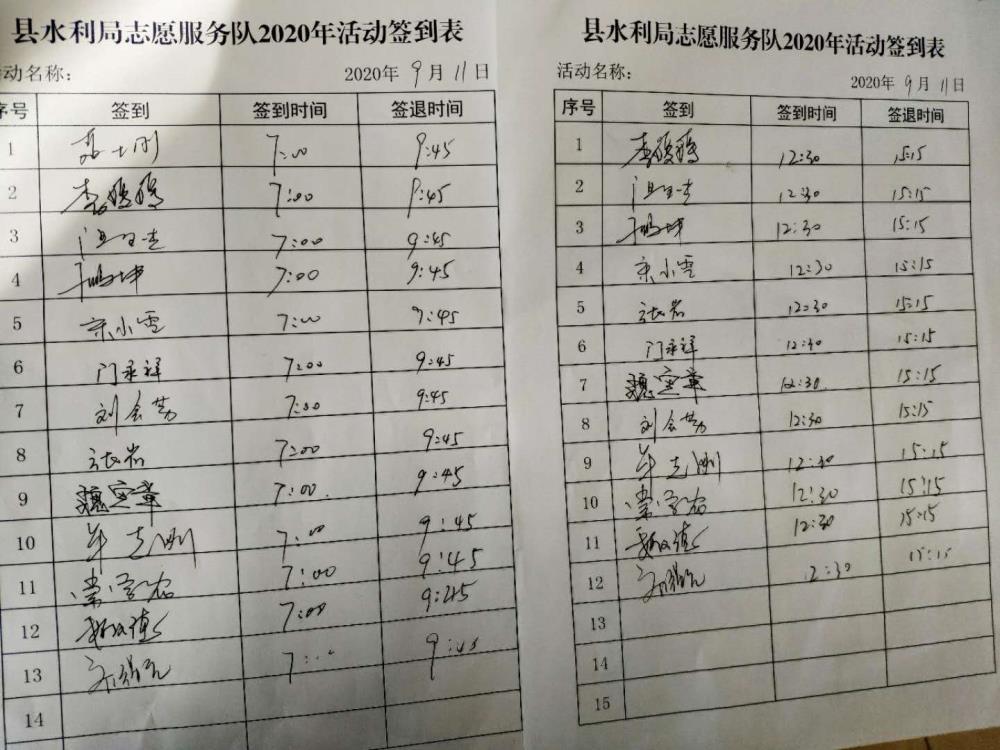 县水利局志愿服务队2020年活动签到表
活动名称: 2020年9月11日
序号 签到 签到时间 签退时间
1 7:00 9:45
2 李嫣嫣 7:00 9:45
3 7:00 9:45
4 7:00 9:45
5 宋小雪 7:00 9:45
6 门永祥 7:00 9:45
7 刘会芳 7:00 9:45
8 张岩 7:00 9:45
9 魏宝章 7:00 9:45
10 7:00 9:45
11 7:00 9:45
12 7:00 9:45
13 7:00 9:45
14
县水利局志愿服务队2020年活动签到表
活动名称: 2020年9月11日
序号 签到 签到时间 签退时间
1 李嫣嫣 12:30 15:15
2 12:30 15:15
3 12:30 15:15
4 宋小雪 12:30 15:15
5 张岩 12:30 15:15
6 门永祥 12:30 15:15
7 魏宝章 12:30 15:15
8 刘会芳 12:30 15:15
9 12:30 15:15
10 12:30 15:15
11 12:30 15:15
12 12:30 15:15
13
14
15